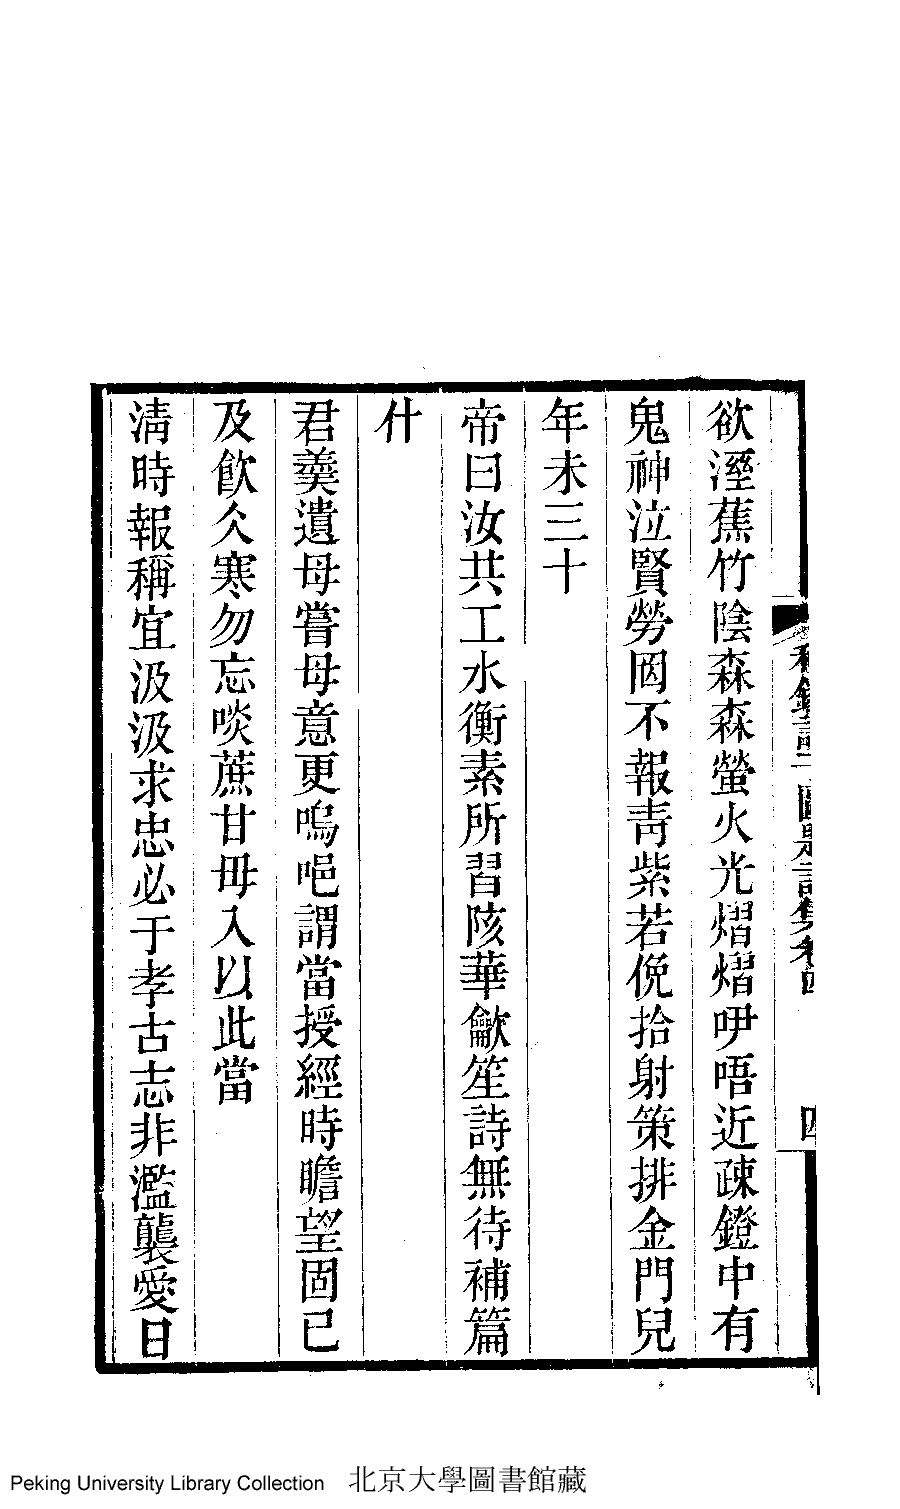 欲溼蕉竹陰森森螢火光熠熠吚唔近疎鐙中有
鬼神泣賢勞罔不報靑紫若俛拾射策排金門兒
年未三十
帝曰汝共工水衡素所習陔華龡笙詩無待補篇
什
君羮遺母嘗母意更嗚唈謂當授經時瞻望固已
及飮久寒勿忘啖蔗甘毋入以此當
淸時報稱宜汲汲求忠必于孝古志非濫襲愛日
鐙
圖
集卷四
四
Peking University Library Collection 北京大學圖書館藏